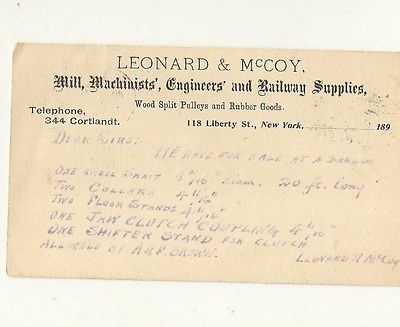 LEONARD & McCOY,
Mill, Machinists', Engineers' and Railway Supplies,
Wood Split Pulleys and Rubber Goods.
Telephone,
344 Cortlandt.
118 Liberty St., New York, 189
DEAR SIRS:-
WE HAVE FOR SALE AT A BARGAIN
ONE STEEL SHAFT 4 11/16" Diam. 20 ft. long
TWO COLLARS 4 11/16"
TWO FLOOR STANDS 4 11/16"
ONE JAW CLUTCH COUPLING 4 11/16"
ONE SHIFTER STAND FOR CLUTCH
ALL MADE BY A & P. BROWN.
LEONARD & McCOY